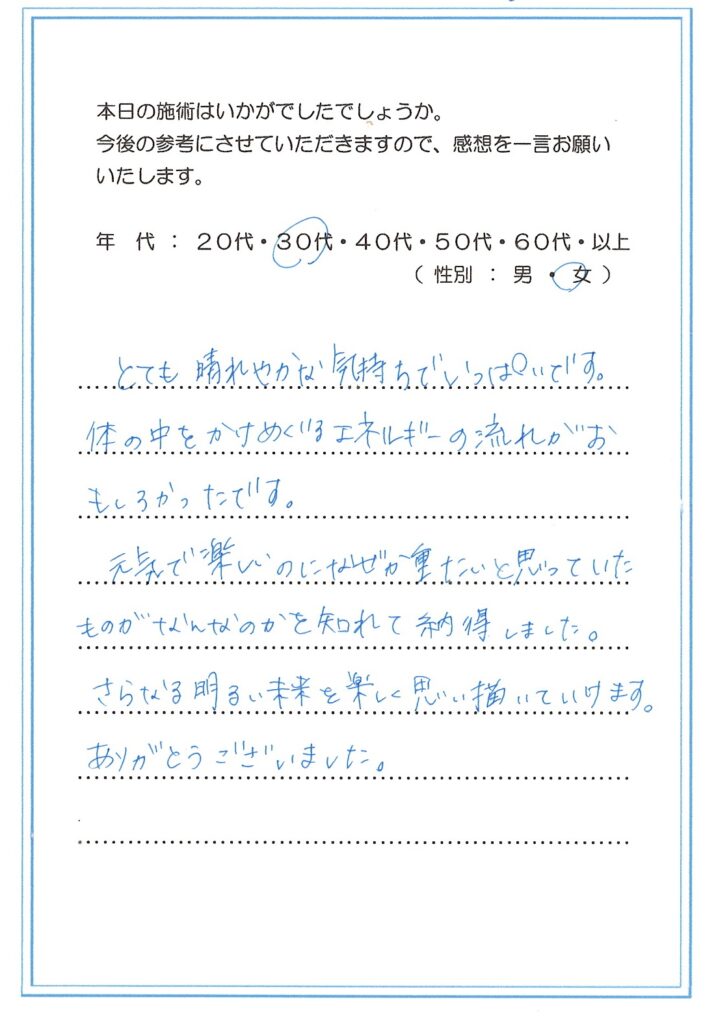 本日の施術はいかがでしたでしょうか。
今後の参考にさせていただきますので、感想を一言お願い
いたします。
年 代 : 20代・30代・40代・50代・60代・以上
( 性別 : 男 ・ 女 )
とても晴れやかな気持ちでいっぱいです。
体の中をかけめぐるエネルギーの流れがお
もしろかったです。
元気で楽しいのになぜか重たいと思っていた
ものがなんなのかを知れて納得しました。
さらなる明るい未来を楽しく思い描いていけます。
ありがとうございました。